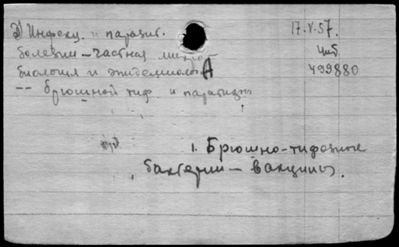 Э) Инфекц. и паразит.
болезни – частная микро
биология и эпидемиолог А
-- брюшной тиф и паратифы
17.V.57.
Циб.
499880
1. Брюшно-тифозные
бактерии – вакцины.